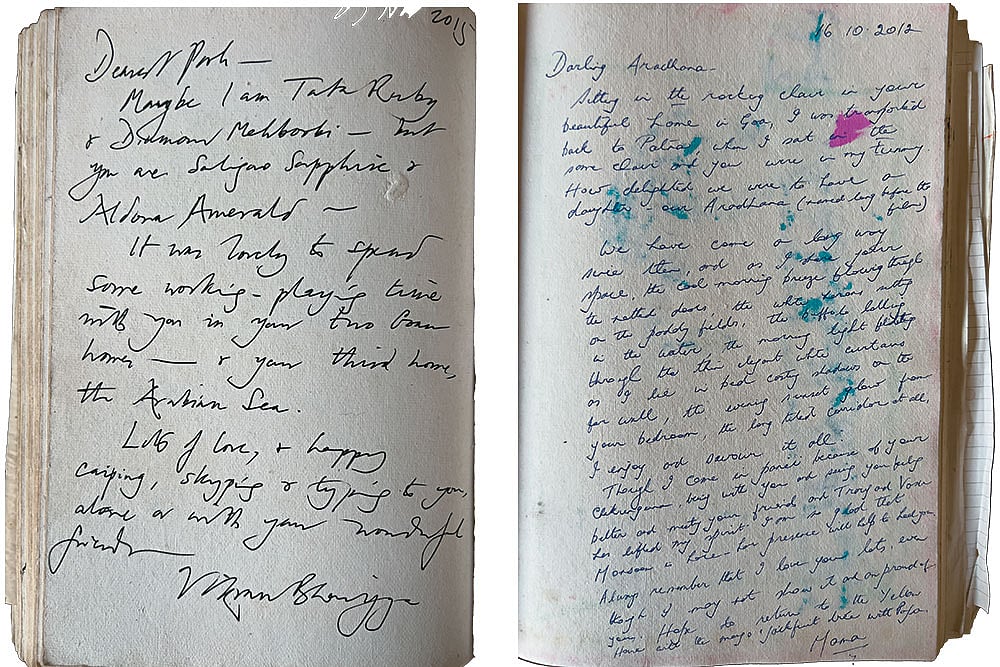 2015
Dearest Posh —
Maybe I am Tata Ruby
& Diamond Mehboobi — but
you are Saligao Sapphire &
Aldona Amerald —
It was lovely to spend
some working - playing time
with you in your two Goan
homes — & your third home,
the Arabian Sea.
Lots of love, & happy
carping, skyping & typing to you,
alone or with your wonderful
friends
16 · 10 · 2012
Darling Aradhana -
Sitting in the rocking chair in your
beautiful home in Goa, I was transported
back to Patna when I sat in the
same chair and you were in my tummy.
How delighted we were to have a
daughter - our Aradhana (named long before the
film)
We have come a long way
since then, and as I share your
space, the cool morning breeze flowing through
the netted doors, the white herons
on the paddy fields, the buffalo lolling
in the water, the morning light
through the thin elegant white curtains
as I lie in bed casting shadows on the
far wall, the evening sunset glow from
your bedroom, the long tiled corridor at all,
I enjoy and savour it all.
Though I came in panic because of your
Chikungunya, being with you and seeing you feeling
better and meeting your friends and
has lifted my spirit.
Monsoon is here - her presence will help to heal you.
Always remember that I love you lots, even
though I may not show it and am proud of
you. Hope to return to the Yellow
House with the mango & jackfruit tree with Papa.
Mama